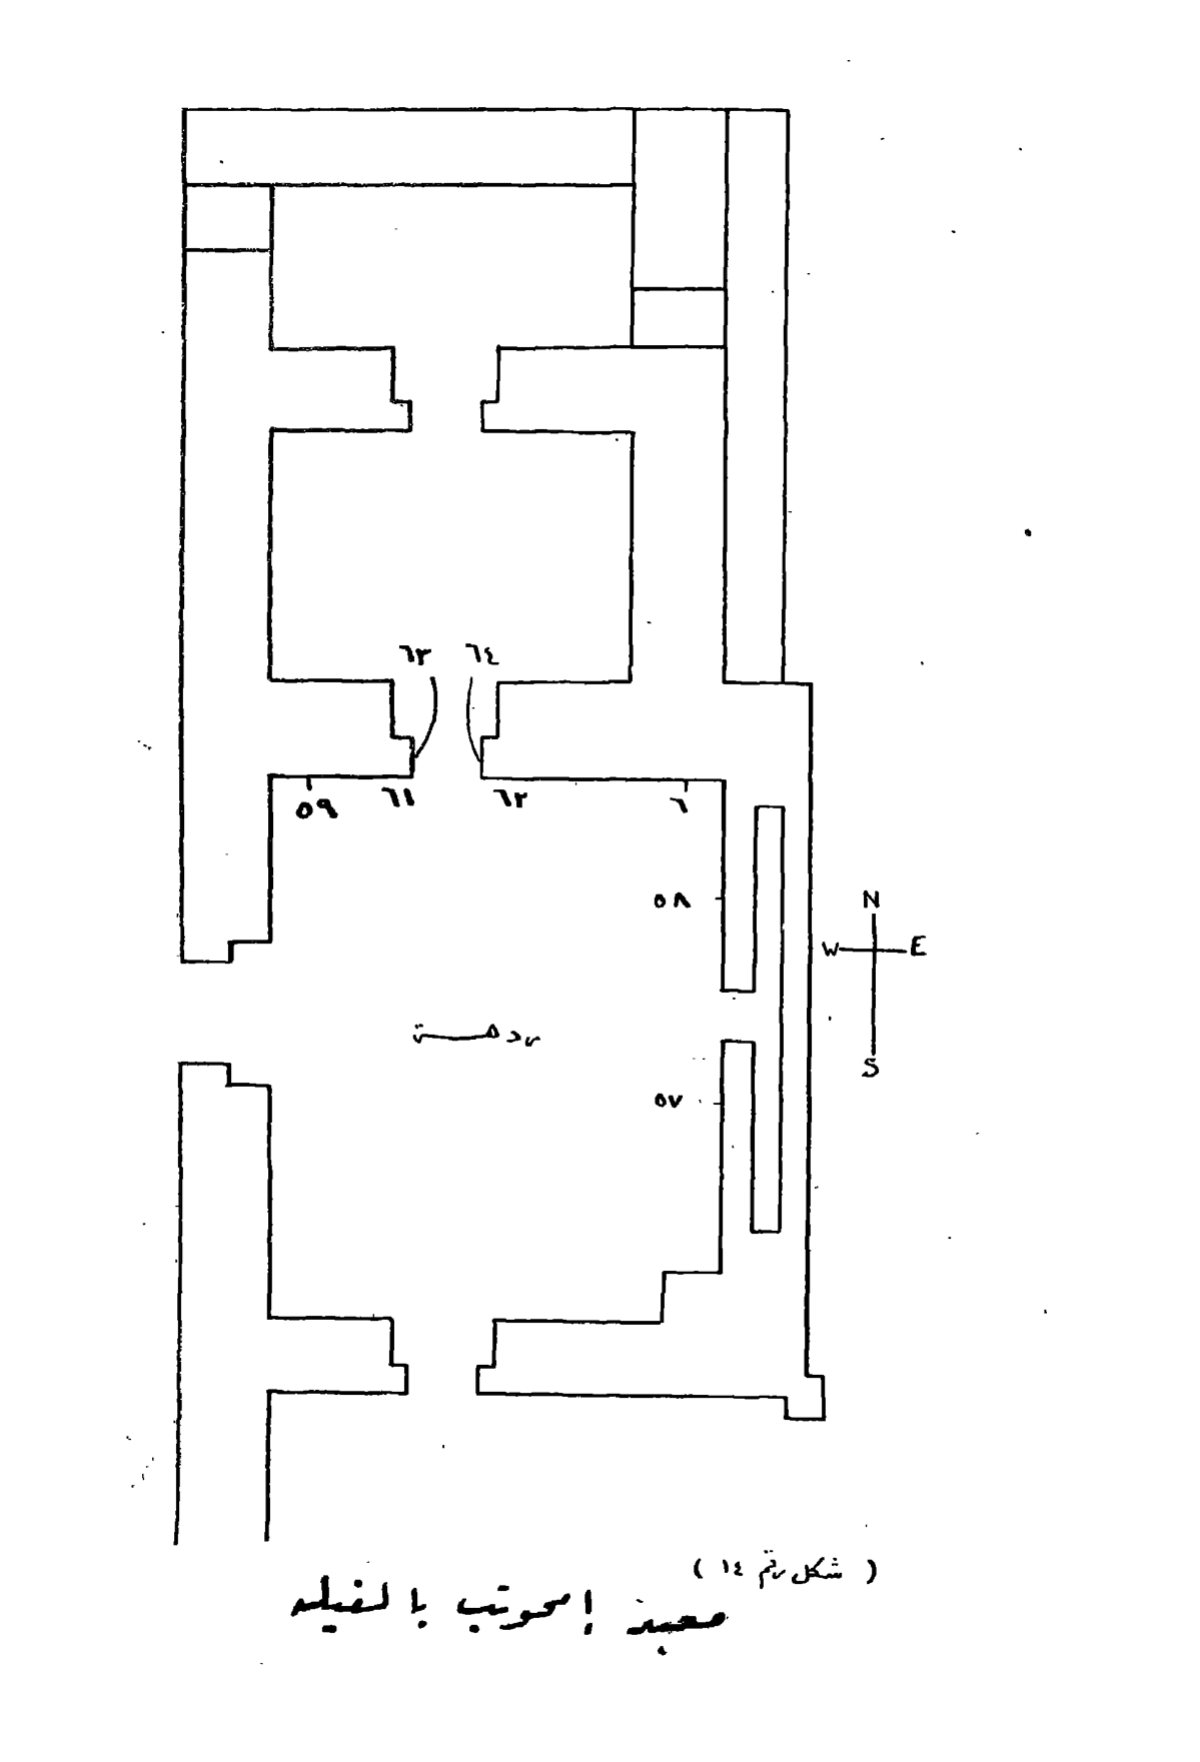 ٦٣ ٦٤
٥٩ ٦١ ٦٢ ٦
٥٨
N
W E
S
ردهـــة
٥٧
( شكل رقم ١٤ )
معبد إمحوتب بالفيله